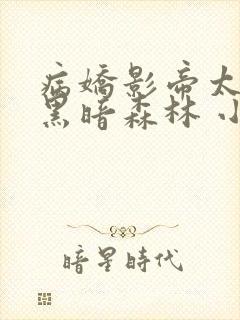 病嬌影帝太
黑暗森林 小
暗星時代